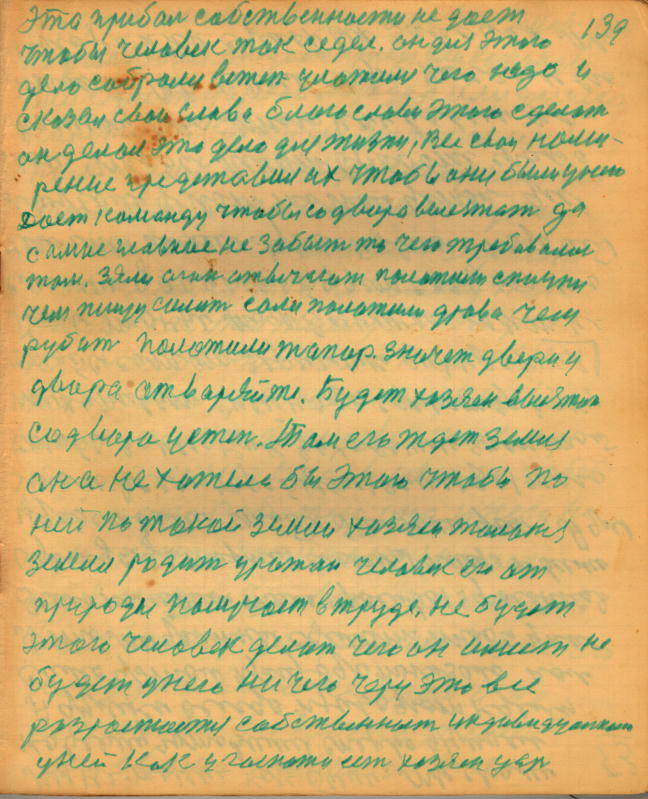 139
Эта прибол собственности не дает
чтобы человек так седел. он для этого
дело собрали вотеп уложили чего надо и
сказал свои слава благослави этого сделат
он делал это дело для жизни, Все свои наме-
рение представил их чтобы они были унего
Дает команду чтобы со двора выезжат да
самые главные не забыт то чего требавалос
там. зяли огон отвечают положили спички
чем пищу солит соли положили дрова чем
рубат положили тапор. значет двери и
двора отваряйте. Будет хозяен выезжат
со двора цетеп. Там его ждет земля
она не хотела бы этого чтобы по
ней по такой земли хозяен
земля родит урожаи человек его от
природы получает в труде, не будет
этого человек делат чего он имеет не
будет унего ничего чему это все
разростается собственност индивидуалная
уней как и господа ест хозяен цар